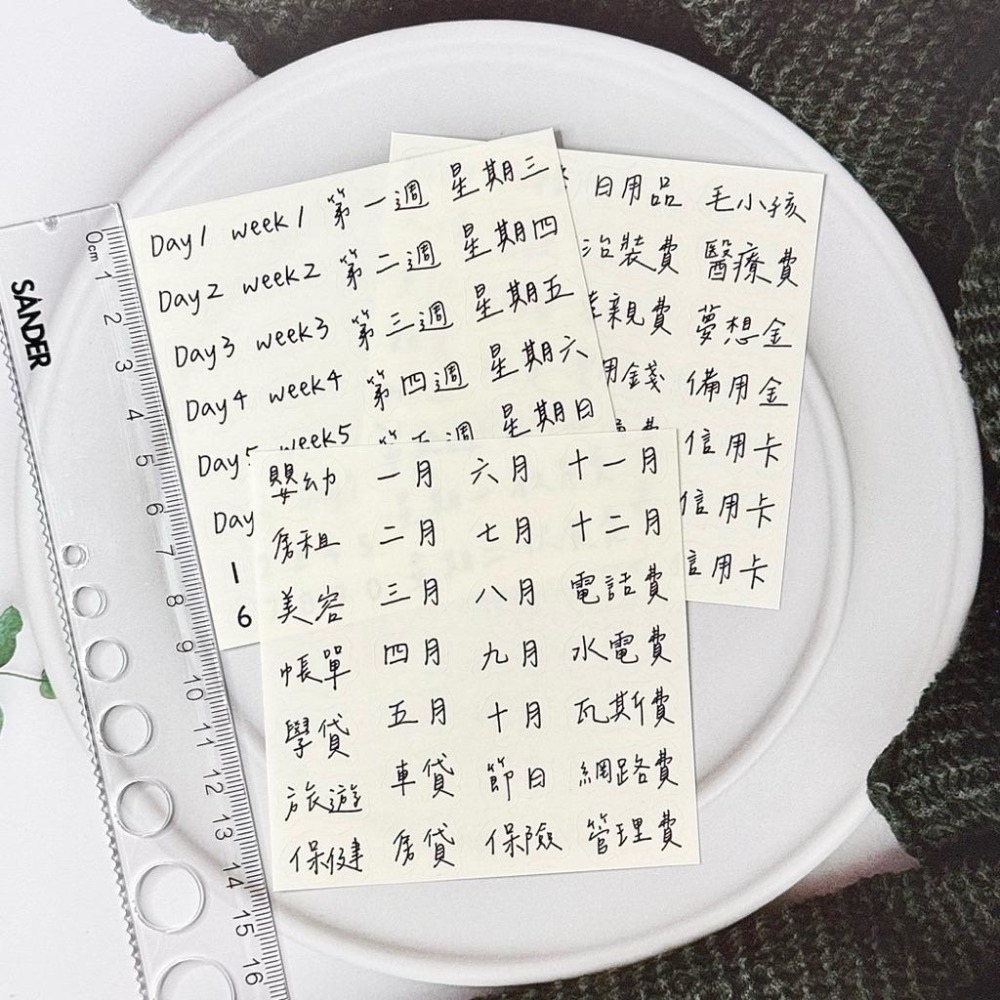 SANDER
0cm 1 2 3 4 5 6 7 8 9 10 11 12 13 14 15 16
Day1 week1 第一週 星期三
Day2 week2 第二週 星期四
Day3 week3 第三週 星期五
Day4 week4 第四週 星期六
Day5 week5 第五週 星期日
Day
1
6
日用品 毛小孩
治裝費 醫療費
親費 夢想金
用錢 備用金
費 信用卡
信用卡
信用卡
嬰幼 一月 六月 十一月
房租 二月 七月 十二月
美容 三月 八月 電話費
帳單 四月 九月 水電費
學貸 五月 十月 瓦斯費
旅遊 車貸 節日 網路費
保健 房貸 保險 管理費